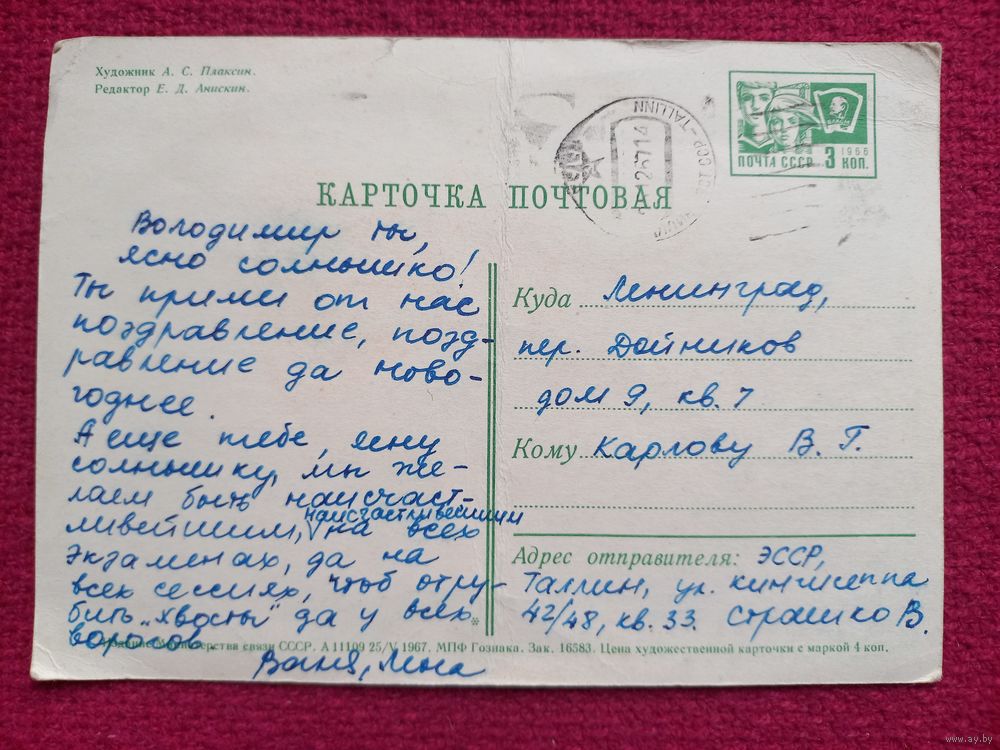 Художник А. С. Плаксин.
Редактор Е. Д. Анискин.
TALLINN
26714
ССР-TALLINN
ВЛКСМ
1966
ПОЧТА СССР 3 КОП.
КАРТОЧКА ПОЧТОВАЯ
Володимир ты,
ясно солнышко!
Ты прими от нас
поздравление, позд-
равление да ново-
годнее.
А еще тебе, ясну
солнышку, мы же-
лаем быть наисчаст-
ливейшим, наисчастливейшим
на всех
экзаменах, да на
всех сессиях, чтоб отру-
бить „хвосты" да у всех
ворогов.
Ваня, Лена
Куда Ленинград,
пер. Дойников
дом 9, кв. 7
Кому Карлову В. Г.
Адрес отправителя: ЭССР,
Таллин, ул. Кингисеппа
42/48, кв. 33. Страшко В.
Министерства связи СССР. А 11109 25/V 1967. МПФ Гознака. Зак. 16583. Цена художественной карточки с маркой 4 коп.
www.ay.by